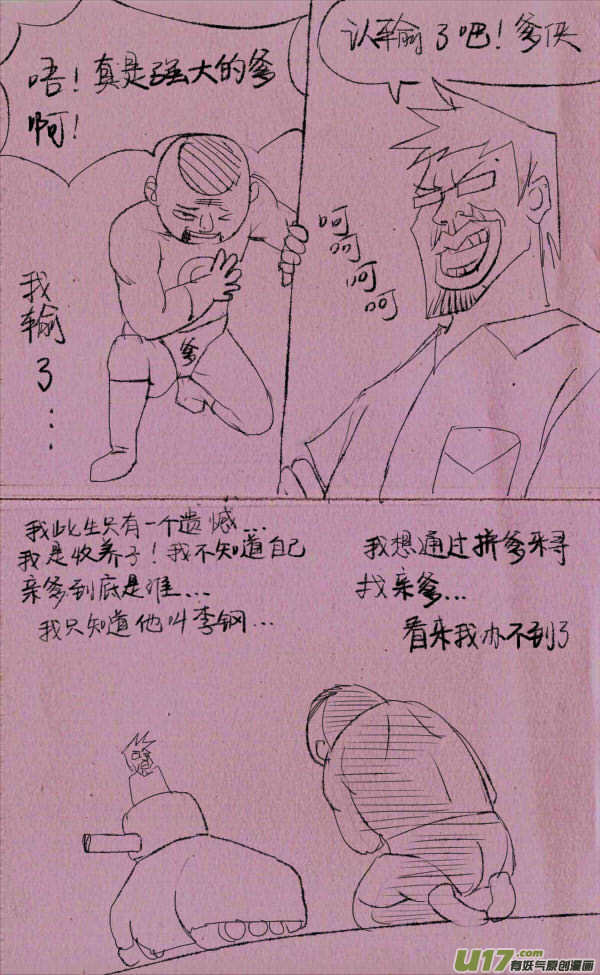 认输了吧！爹侠
呵呵呵呵
唔！真是强大的爹
啊！
我输了...
爹
我此生只有一个遗憾...
我是收养子！我不知道自己
亲爹到底是谁...
我只知道他叫李钢...
我想通过拼爹来寻
找亲爹...
看来我办不到了
U17.com
有妖气原创漫画